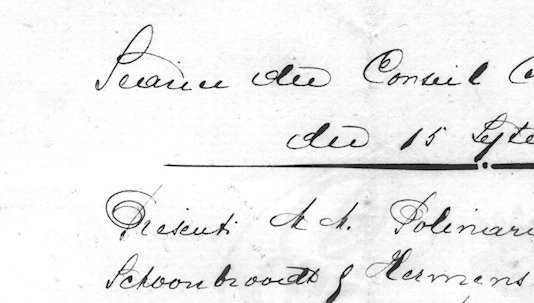 Séance du Conseil C
du 15 Septe
Présents M M. Polinari
Schoonbroodt J Hermens